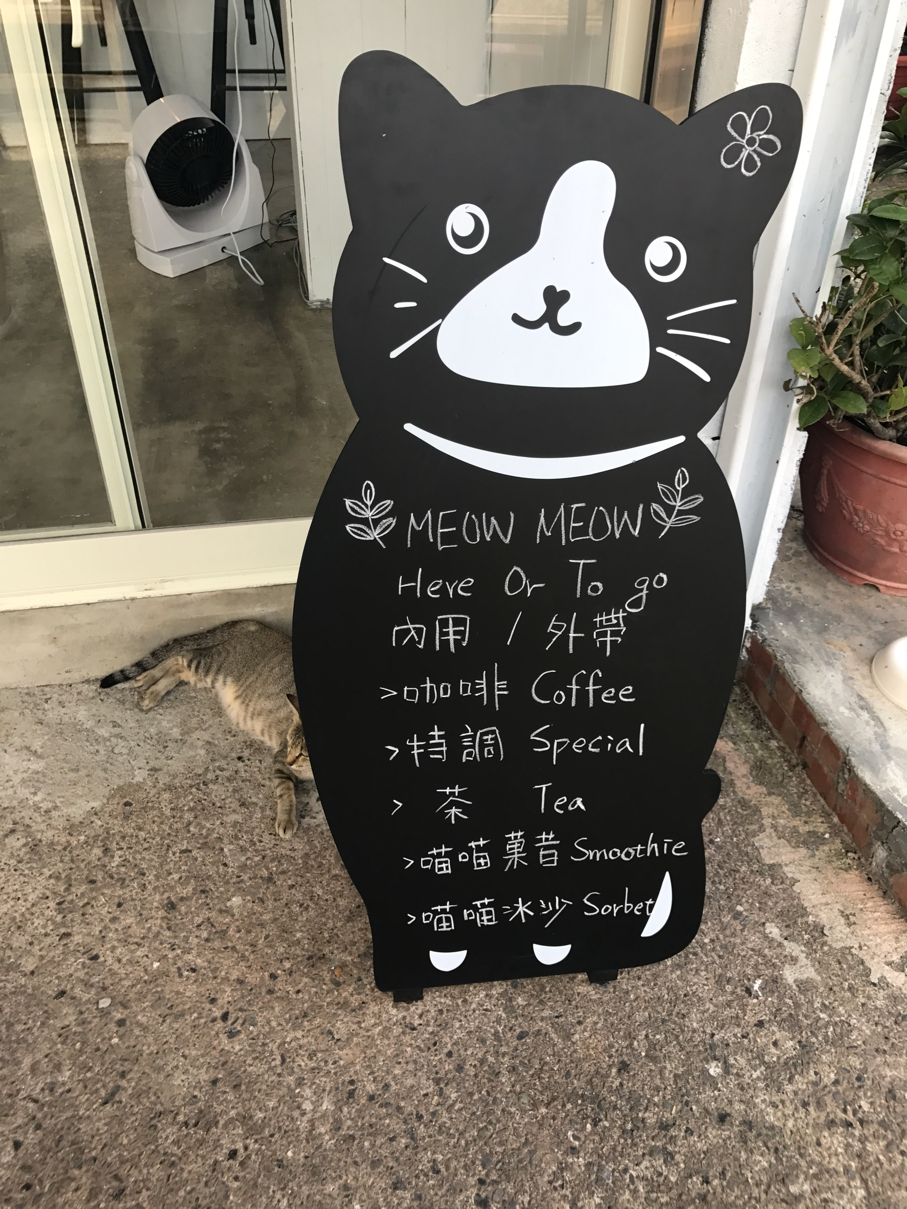 MEOW MEOW
Here Or To go
內用 / 外帶
>咖啡 Coffee
>特調 Special
> 茶 Tea
>喵喵菓昔 Smoothie
>喵喵冰沙 Sorbet